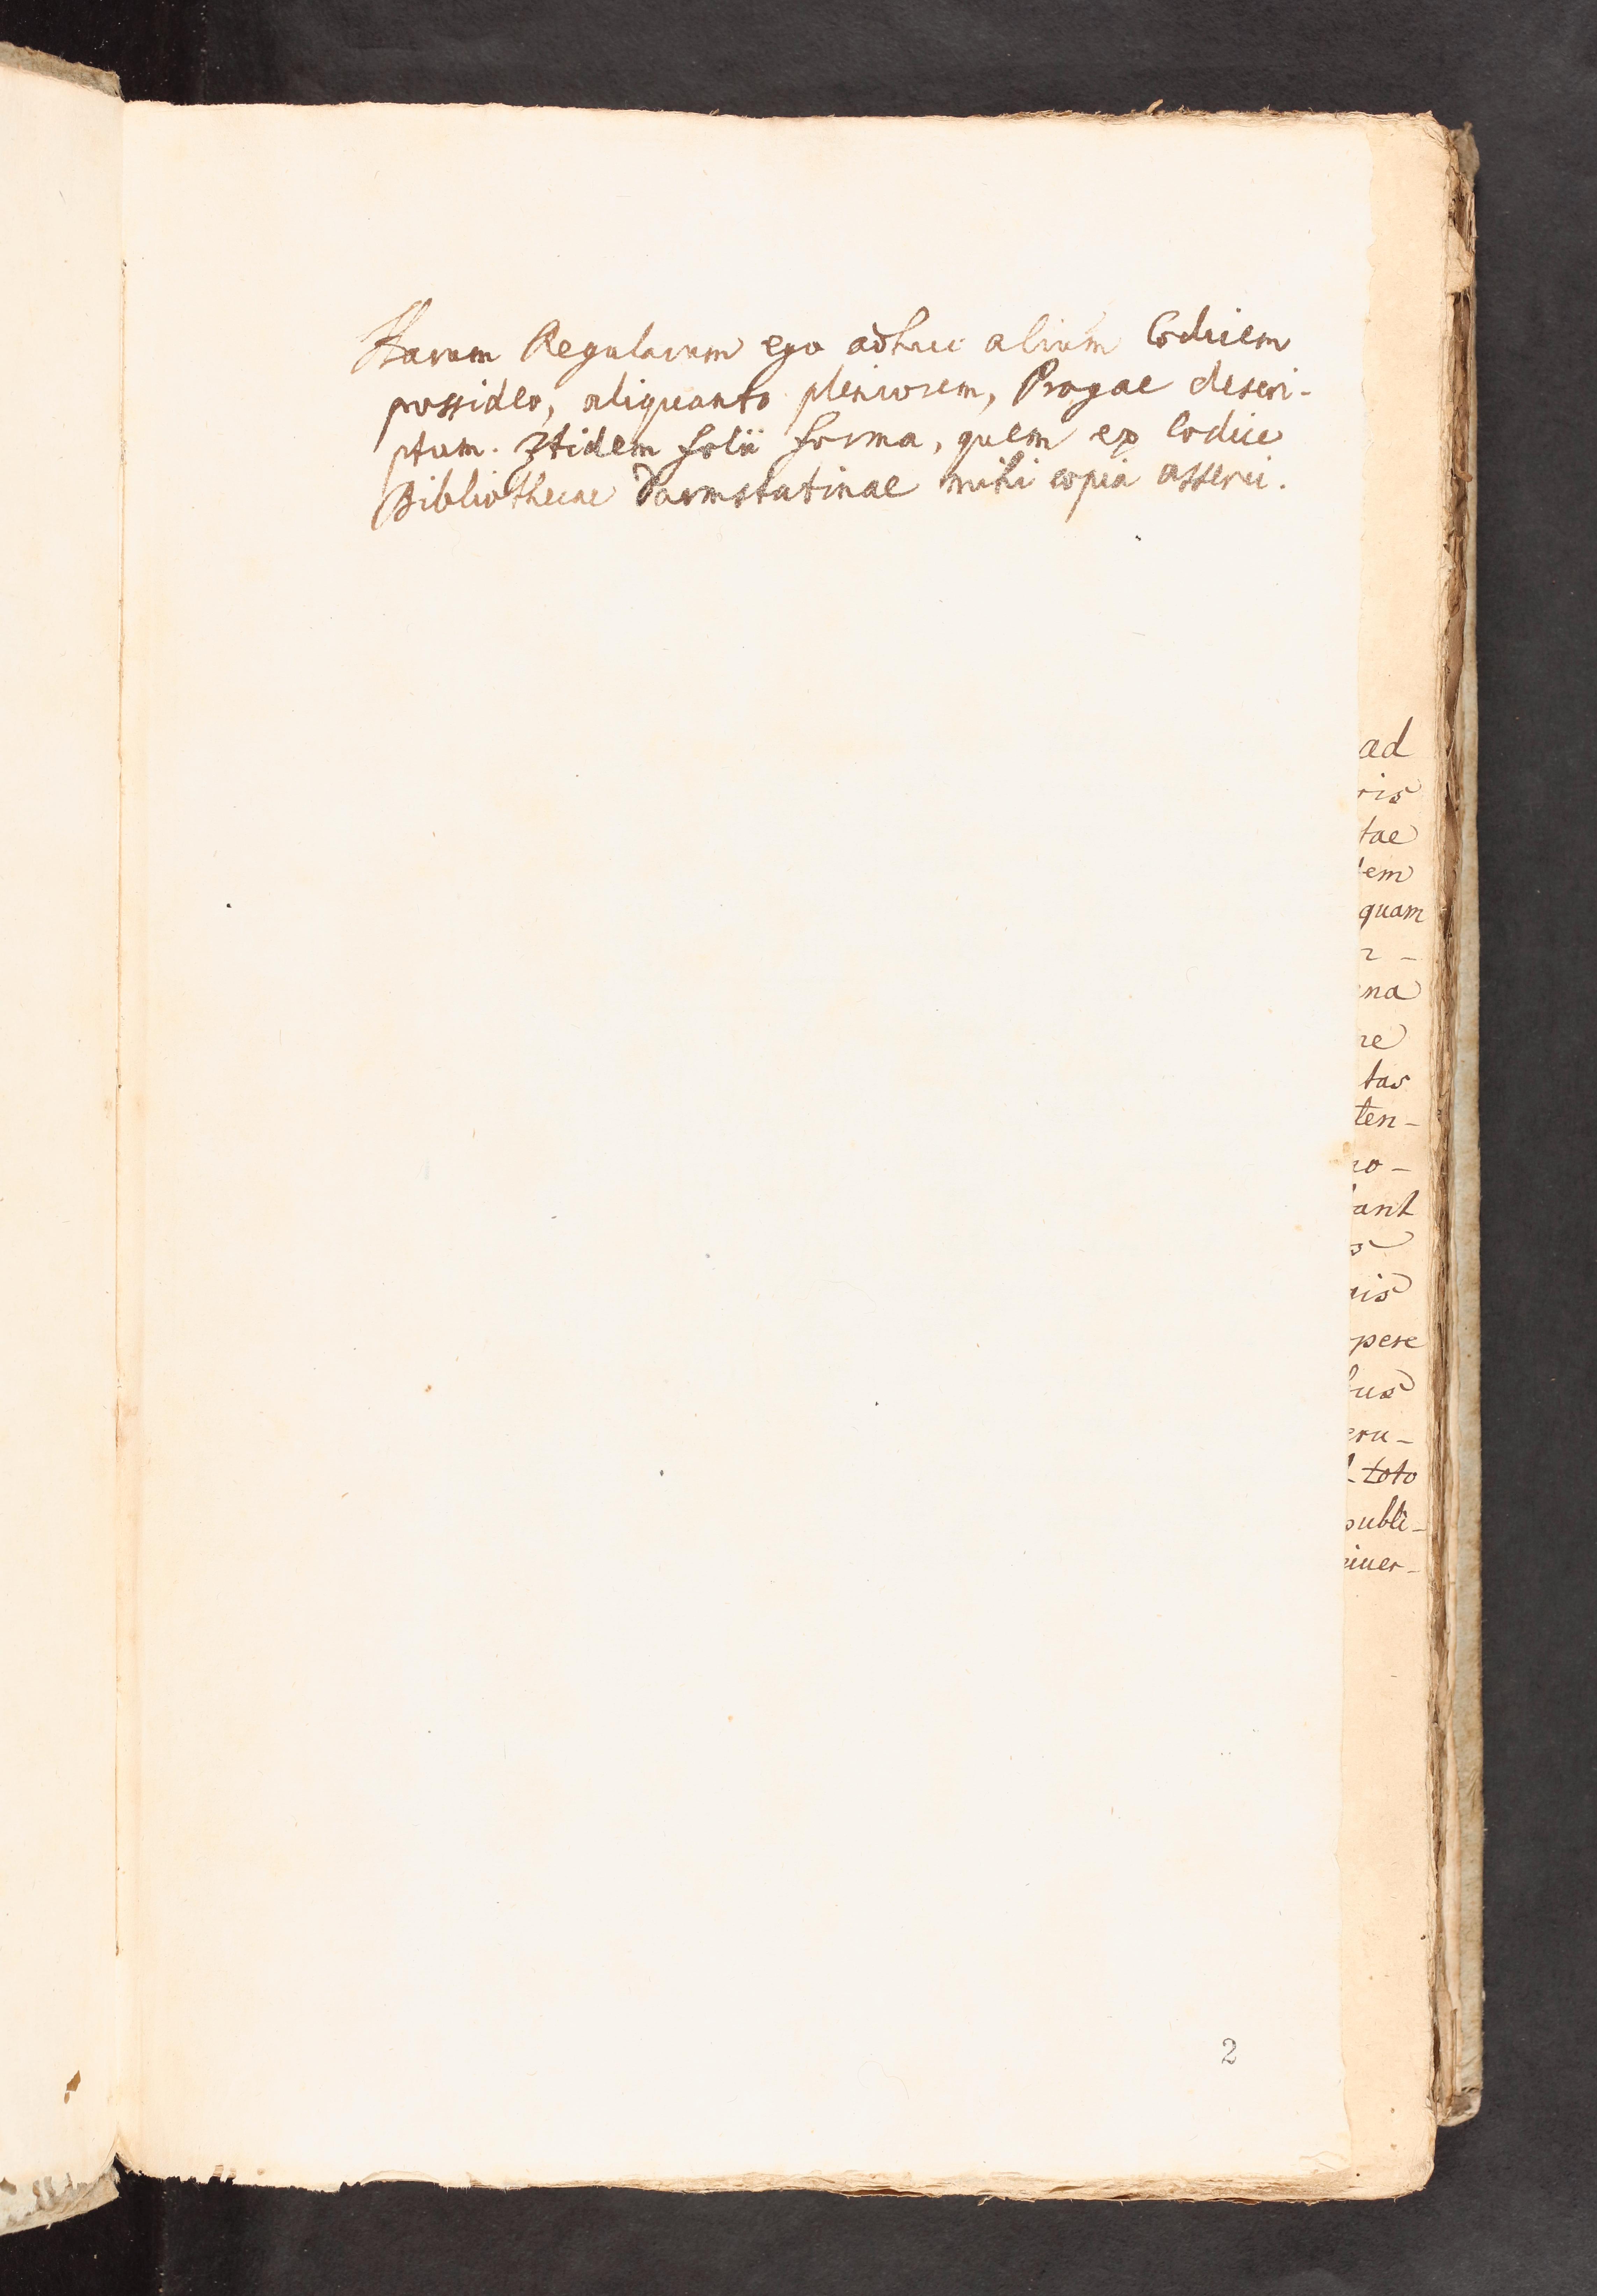 Harum Regularum ego adhuc alium Codicem
possideo, aliquanto pleniorem, Pragae descri-
ptum. Itidem folii forma, quem ex Codice
Bibliothecae Darmstatinae mihi copia asservi.
ad
ris
tae
em
quam
na
re
tas
ten-
no-
ant
s
uis
pere
bus
eru-
toto
publi-
iuer-
2